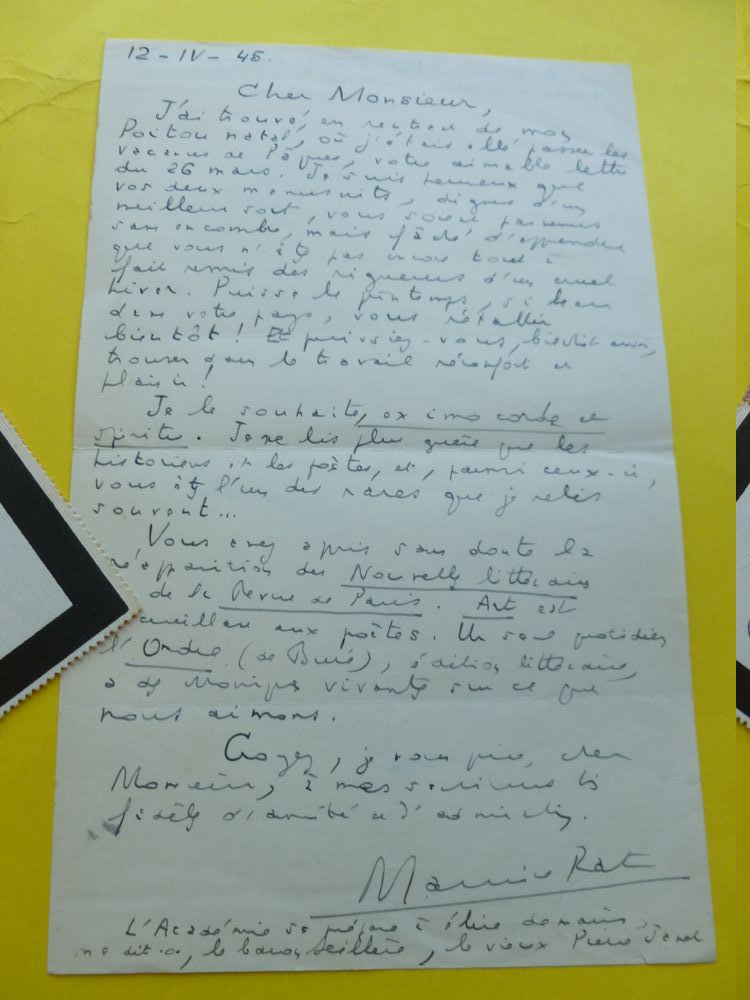 12 - IV - 45.
Cher Monsieur,
J'ai trouvé, en rentrant de mon
Poitou natal, où j'étais allé passer les
vacances de Pâques, votre aimable lettre
du 26 mars. Je suis heureux que
vos deux manuscrits, dignes d'un
meilleur sort, vous soient parvenus
sans encombre, mais fâché d'apprendre
que vous n'êtes pas encore tout à
fait remis des rigueurs d'un cruel
hiver. Puisse le printemps, si beau
dans votre pays, vous rétablir
bientôt ! Et puissiez-vous, bientôt aussi,
trouver dans le travail réconfort et
plaisir !
Je le souhaite, ex imo corde et
spiritu. Je ne lis plus guère que les
historiens et les poètes, et, parmi ceux-ci,
vous êtes l'un des rares que je relis
souvent...
Vous avez appris sans doute la
réapparition des Nouvelles littéraires
de la Revue de Paris. Art est
accueillant aux poètes. Un seul quotidien
l'Ordre (de Buré), édition littéraire,
a des chroniques vivantes sur ce que
nous aimons.
Croyez, je vous prie, cher
Monsieur, à mes sentiments
fidèles d'amitié et d'admiration.
Maurice Rat
L'Académie se prépare à élire demain,
me dit-on, le baron Seillière, le vieux Pierre Janet